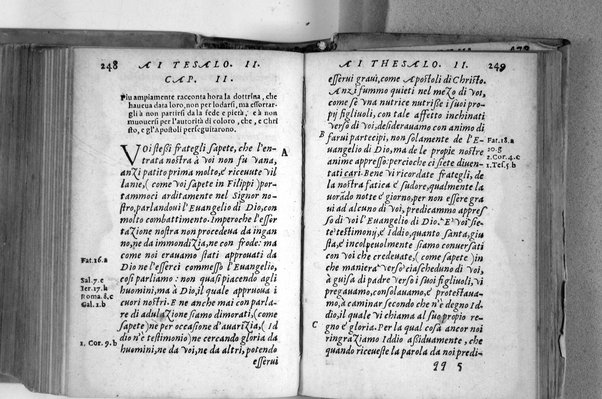 248 AI TESALO. II.
CAP. II.
Piu ampiamente racconta hora la dottrina, che
haueua data loro, non per lodarsi, ma essortar-
gli à non partirsi da la fede e pietà, e à non
muouersi per l'autorità di coloro, che, e Chri
sto, e gl'Apostoli perseguitarono.
VOi stessi frategli sapete, che l'en-
trata nostra à voi non fu vana,
anzi patito prima molto, e riceuute vil
lanie, (come voi sapete in Filippi) por-
tammoci arditamente nel Signor no-
stro, parlandoui l'Euangelio di Dio, con
molto combattimento. Imperoche l'essor-
tazione nostra non procedeua da ingan
no, ne da immondizia, ne con frode: ma
come noi erauamo stati approuati da
Dio ne l'esserci commesso l'Euangelio,
cosi parliamo: non quasi piacendo agli
huomini, ma à Dio, il quale appruoua i
cuori nostri. E ne anche mai con parla-
re di adulazione siamo dimorati, (come
sapete) ne per occasione d'auarizia, (Id
dio n'è testimonio) ne cercando gloria da
huomini, ne da voi, ne da altri, potendo
esserui
A
Fat. 16. a
Sal. 7. c
Ier. 17. b
Roma. 8. c
Gal. 1. b
1. Cor. 9. b
AI THESALO. II. 249
esserui graui, come Apostoli di Christo.
Anzi fummo quieti nel mezo di voi,
come se vna nutrice nutrisse i suoi pro-
pij figliuoli, con tale affetto inchinati
verso di voi, desiderauamo con animo di
farui partecipi, non solamente de l'E-
uangelio di Dio, ma de le propie nostre
anime appresso: percioche ci siete diuen-
tati cari. Bene vi ricordate frategli, de
la nostra fatica e sudore, qualmente la
uorādo notte e giorno, per non essere gra
ui ad alcuno di voi, predicammo apres
so di voi l'Euangelio di Dio. E voi sie-
te testimonij, e Iddio, quanto santa, giu
sta, e incolpeuolmente siamo conuersati
con voi che credeuate, (come sapete) in
che maniera verso ciascheduno di voi,
à guisa di padre verso i suoi figliuoli, vi
pregauamo, consolauamo, e protestaua-
mo, à caminar secondo che n'è degno Id-
dio, il quale vi chiama al suo propio re-
gno e gloria. Per la qual cosa ancor noi
ringraziamo Iddio assiduamente, che
quando riceueste la parola da noi predi-
qq 5
B
C
Fat. 18. a
20. g
2. Cor. 4. c
1. Tes. 5. b